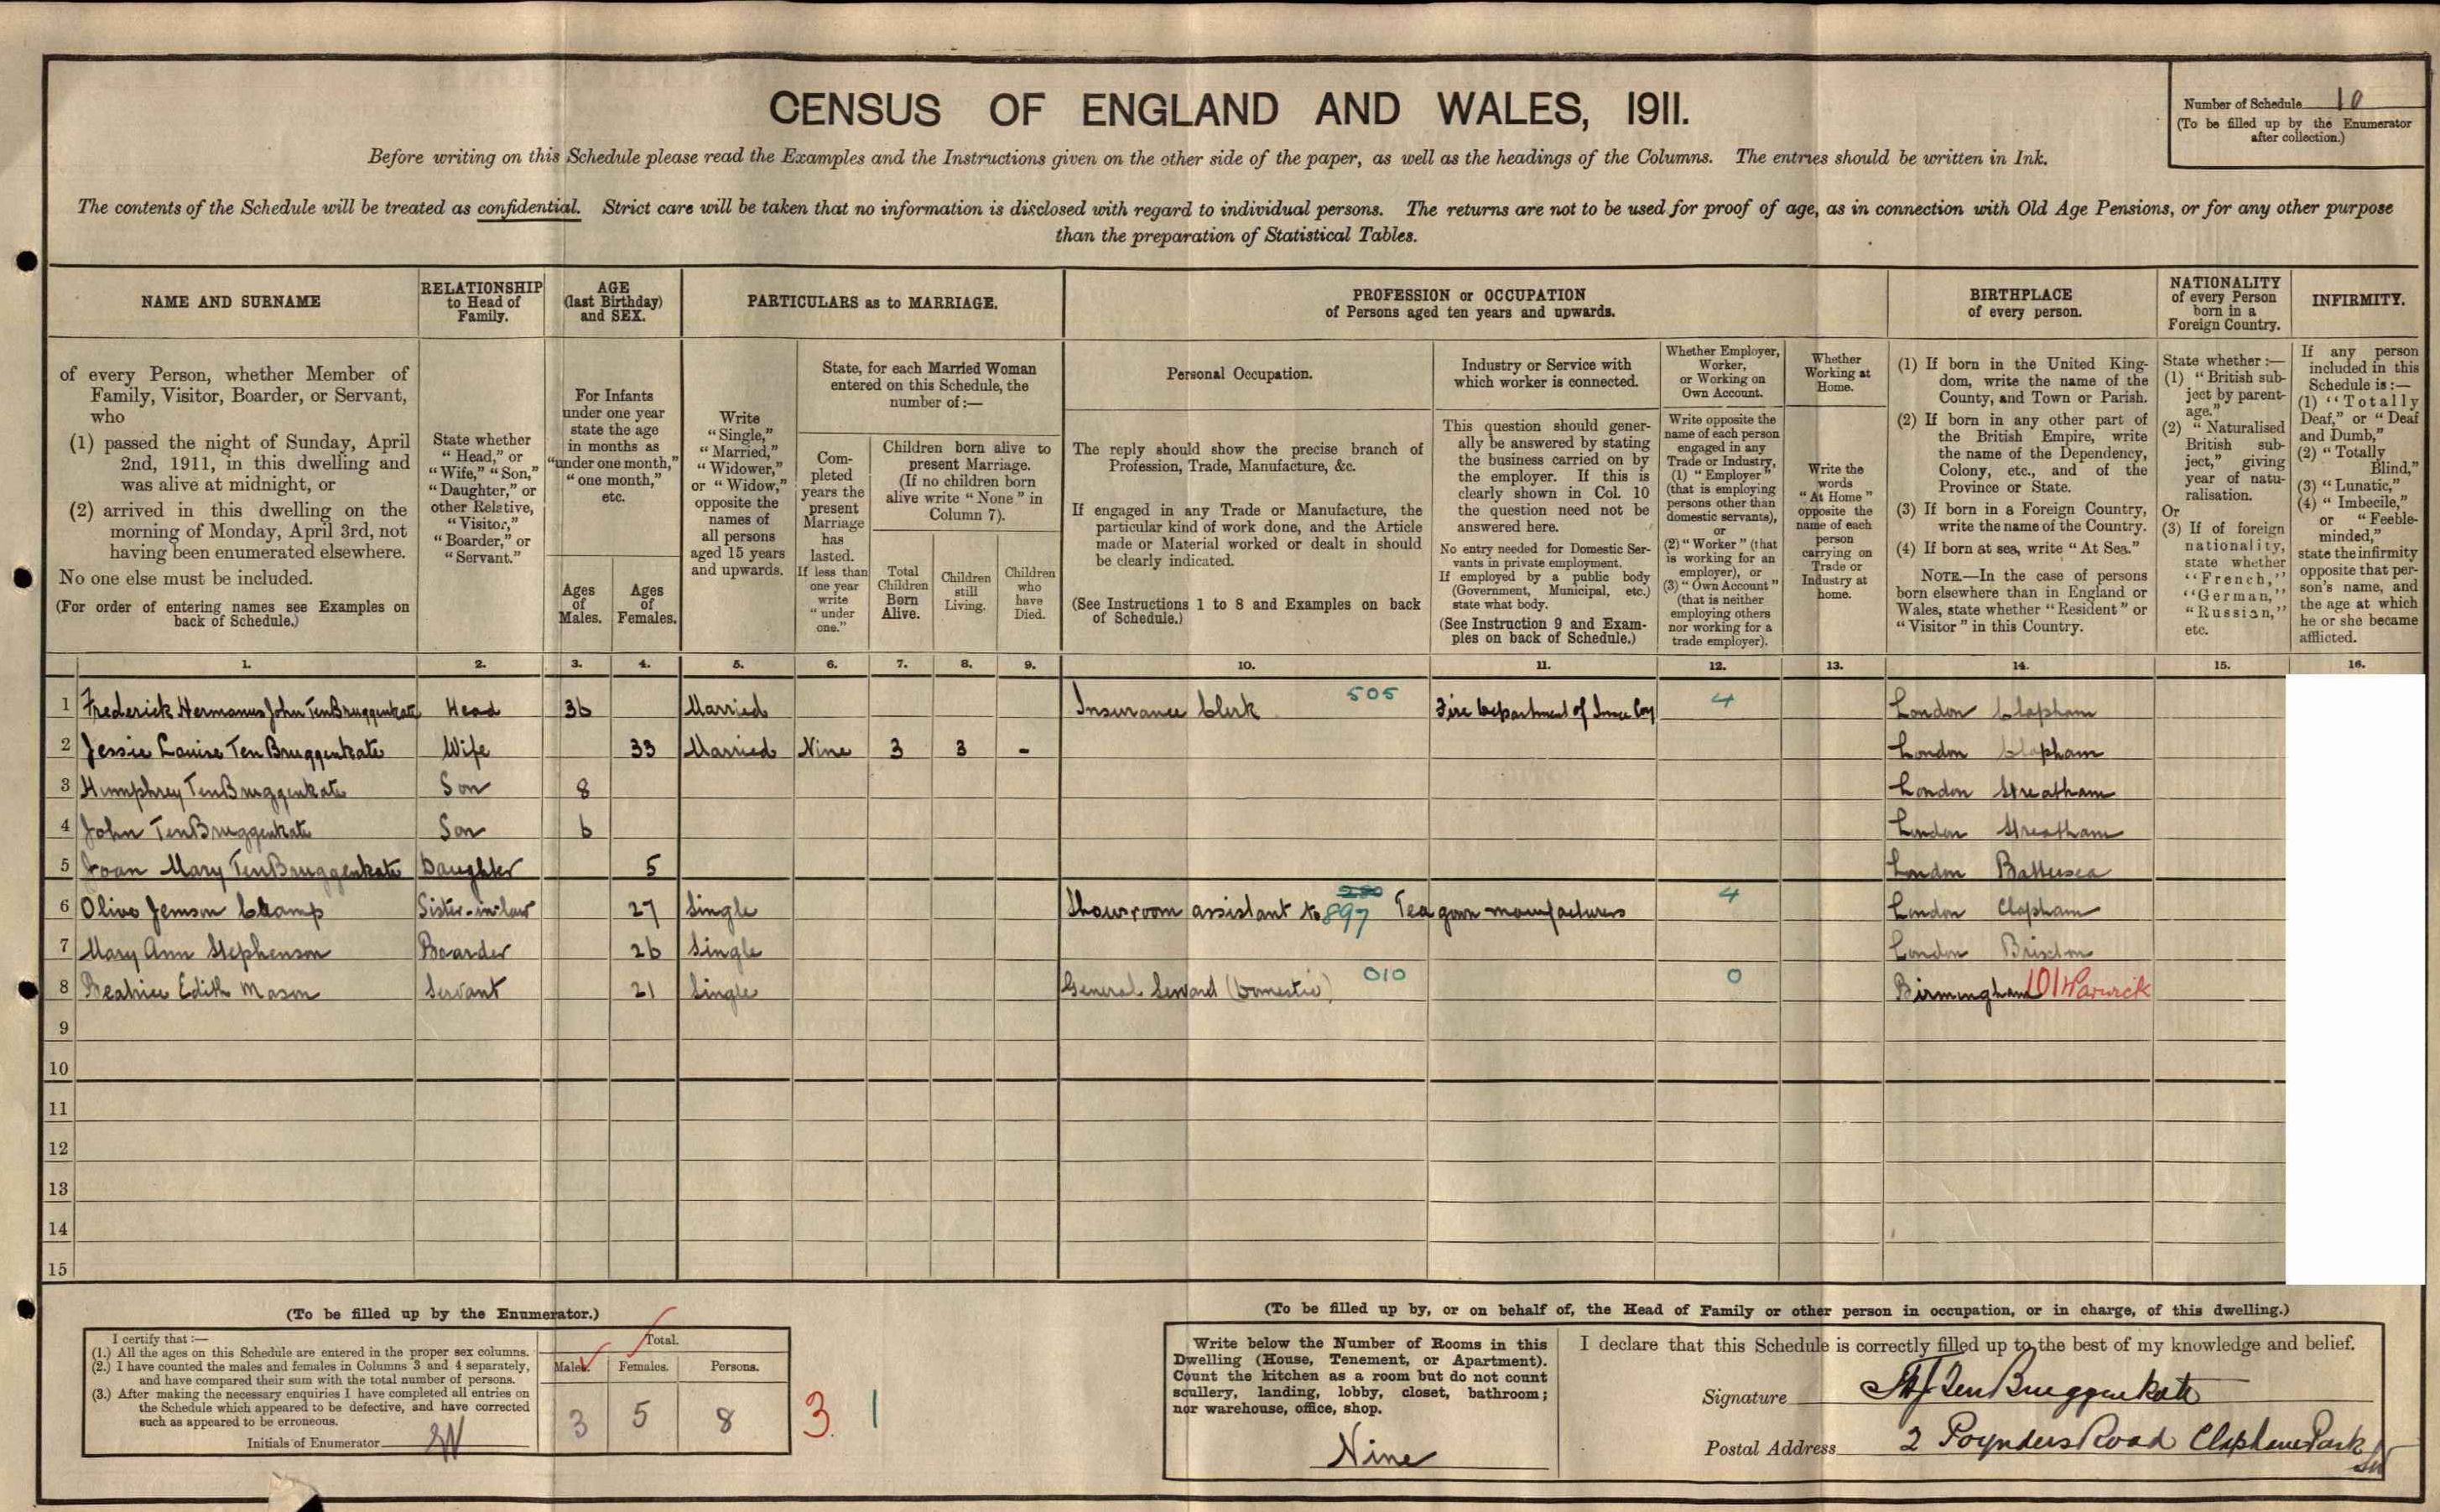 CENSUS OF ENGLAND AND WALES, 1911.
Number of Schedule 10
(To be filled up by the Enumerator
after collection.)
Before writing on this Schedule please read the Examples and the Instructions given on the other side of the paper, as well as the headings of the Columns. The entries should be written in Ink.
The contents of the Schedule will be treated as confidential. Strict care will be taken that no information is disclosed with regard to individual persons. The returns are not to be used for proof of age, as in connection with Old Age Pensions, or for any other purpose
than the preparation of Statistical Tables.
NAME AND SURNAME
of every Person, whether Member of
Family, Visitor, Boarder, or Servant,
who
(1) passed the night of Sunday, April
2nd, 1911, in this dwelling and
was alive at midnight, or
(2) arrived in this dwelling on the
morning of Monday, April 3rd, not
having been enumerated elsewhere.
No one else must be included.
(For order of entering names see Examples on
back of Schedule.)
RELATIONSHIP
to Head of
Family.
State whether
"Head," or
"Wife," "Son,"
"Daughter," or
other Relative,
"Visitor,"
"Boarder," or
"Servant."
AGE
(last Birthday)
and SEX.
For Infants
under one year
state the age
in months as
"under one month,"
"one month,"
etc.
Ages
of
Males.
Ages
of
Females.
PARTICULARS as to MARRIAGE.
Write
"Single,"
"Married,"
"Widower,"
or "Widow,"
opposite the
names of
all persons
aged 15 years
and upwards.
State, for each Married Woman
entered on this Schedule, the
number of :—
Com-
pleted
years the
present
Marriage
has
lasted.
If less than
one year
write
"under
one."
Children born alive to
present Marriage.
(If no children born
alive write "None" in
Column 7).
Total
Children
Born
Alive.
Children
still
Living.
Children
who
have
Died.
PROFESSION or OCCUPATION
of Persons aged ten years and upwards.
Personal Occupation.
The reply should show the precise branch of
Profession, Trade, Manufacture, &c.
If engaged in any Trade or Manufacture, the
particular kind of work done, and the Article
made or Material worked or dealt in should
be clearly indicated.
(See Instructions 1 to 8 and Examples on back
of Schedule.)
Industry or Service with
which worker is connected.
This question should gener-
ally be answered by stating
the business carried on by
the employer. If this is
clearly shown in Col. 10
the question need not be
answered here.
No entry needed for Domestic Ser-
vants in private employment.
If employed by a public body
(Government, Municipal, etc.)
state what body.
(See Instruction 9 and Exam-
ples on back of Schedule.)
Whether Employer,
Worker,
or Working on
Own Account.
Write opposite the
name of each person
engaged in any
Trade or Industry,
(1) "Employer"
(that is employing
persons other than
domestic servants),
or
(2) "Worker" (that
is working for an
employer), or
(3) "Own Account"
(that is neither
employing others
nor working for a
trade employer).
Whether
Working at
Home.
Write the
words
"At Home"
opposite the
name of each
person
carrying on
Trade or
Industry at
home.
BIRTHPLACE
of every person.
(1) If born in the United King-
dom, write the name of the
County, and Town or Parish.
(2) If born in any other part of
the British Empire, write
the name of the Dependency,
Colony, etc., and of the
Province or State.
(3) If born in a Foreign Country,
write the name of the Country.
(4) If born at sea, write "At Sea."
NOTE.—In the case of persons
born elsewhere than in England or
Wales, state whether "Resident" or
"Visitor" in this Country.
NATIONALITY
of every Person
born in a
Foreign Country.
State whether :—
(1) "British sub-
ject by parent-
age."
(2) "Naturalised
British sub-
ject," giving
year of natu-
ralisation.
Or
(3) If of foreign
nationality,
state whether
"French,"
"German,"
"Russian,"
etc.
INFIRMITY.
If any person
included in this
Schedule is :—
(1) "Totally
Deaf," or "Deaf
and Dumb,"
(2) "Totally
Blind,"
(3) "Lunatic,"
(4) "Imbecile,"
or "Feeble-
minded,"
state the infirmity
opposite that per-
son's name, and
the age at which
he or she became
afflicted.
1. 2. 3. 4. 5. 6. 7. 8. 9. 10. 11. 12. 13. 14. 15. 16.
1 Frederick Hermanus John TenBruggenkate Head 36 Married Insurance Clerk 505 Fire Department of Insce Coy 4 London Clapham
2 Jessie Louise Ten Bruggenkate Wife 33 Married Nine 3 3 - London Clapham
3 Humphrey TenBruggenkate Son 8 London Streatham
4 John TenBruggenkate Son 6 London Streatham
5 Joan Mary TenBruggenkate Daughter 5 London Battersea
6 Olive Jemson Clamp Sister-in-law 27 Single Showroom assistant to 897 Tea gown manufacturers 4 London Clapham
7 Mary Ann Stephenson Boarder 26 Single London Brixton
8 Beatrice Edith Mason Servant 21 Single General Servant (Domestic) 010 0 Birmingham 101 Warwick
9
10
11
12
13
14
15
(To be filled up by the Enumerator.)
I certify that :—
(1.) All the ages on this Schedule are entered in the proper sex columns.
(2.) I have counted the males and females in Columns 3 and 4 separately,
and have compared their sum with the total number of persons.
(3.) After making the necessary enquiries I have completed all entries on
the Schedule which appeared to be defective, and have corrected
such as appeared to be erroneous.
Initials of Enumerator
Total.
Males. Females. Persons.
3 5 8
3. 1
(To be filled up by, or on behalf of, the Head of Family or other person in occupation, or in charge, of this dwelling.)
Write below the Number of Rooms in this
Dwelling (House, Tenement, or Apartment).
Count the kitchen as a room but do not count
scullery, landing, lobby, closet, bathroom;
nor warehouse, office, shop.
Nine
I declare that this Schedule is correctly filled up to the best of my knowledge and belief.
Signature FHJ TenBruggenkate
Postal Address 2 Poynders Road Clapham Park SW